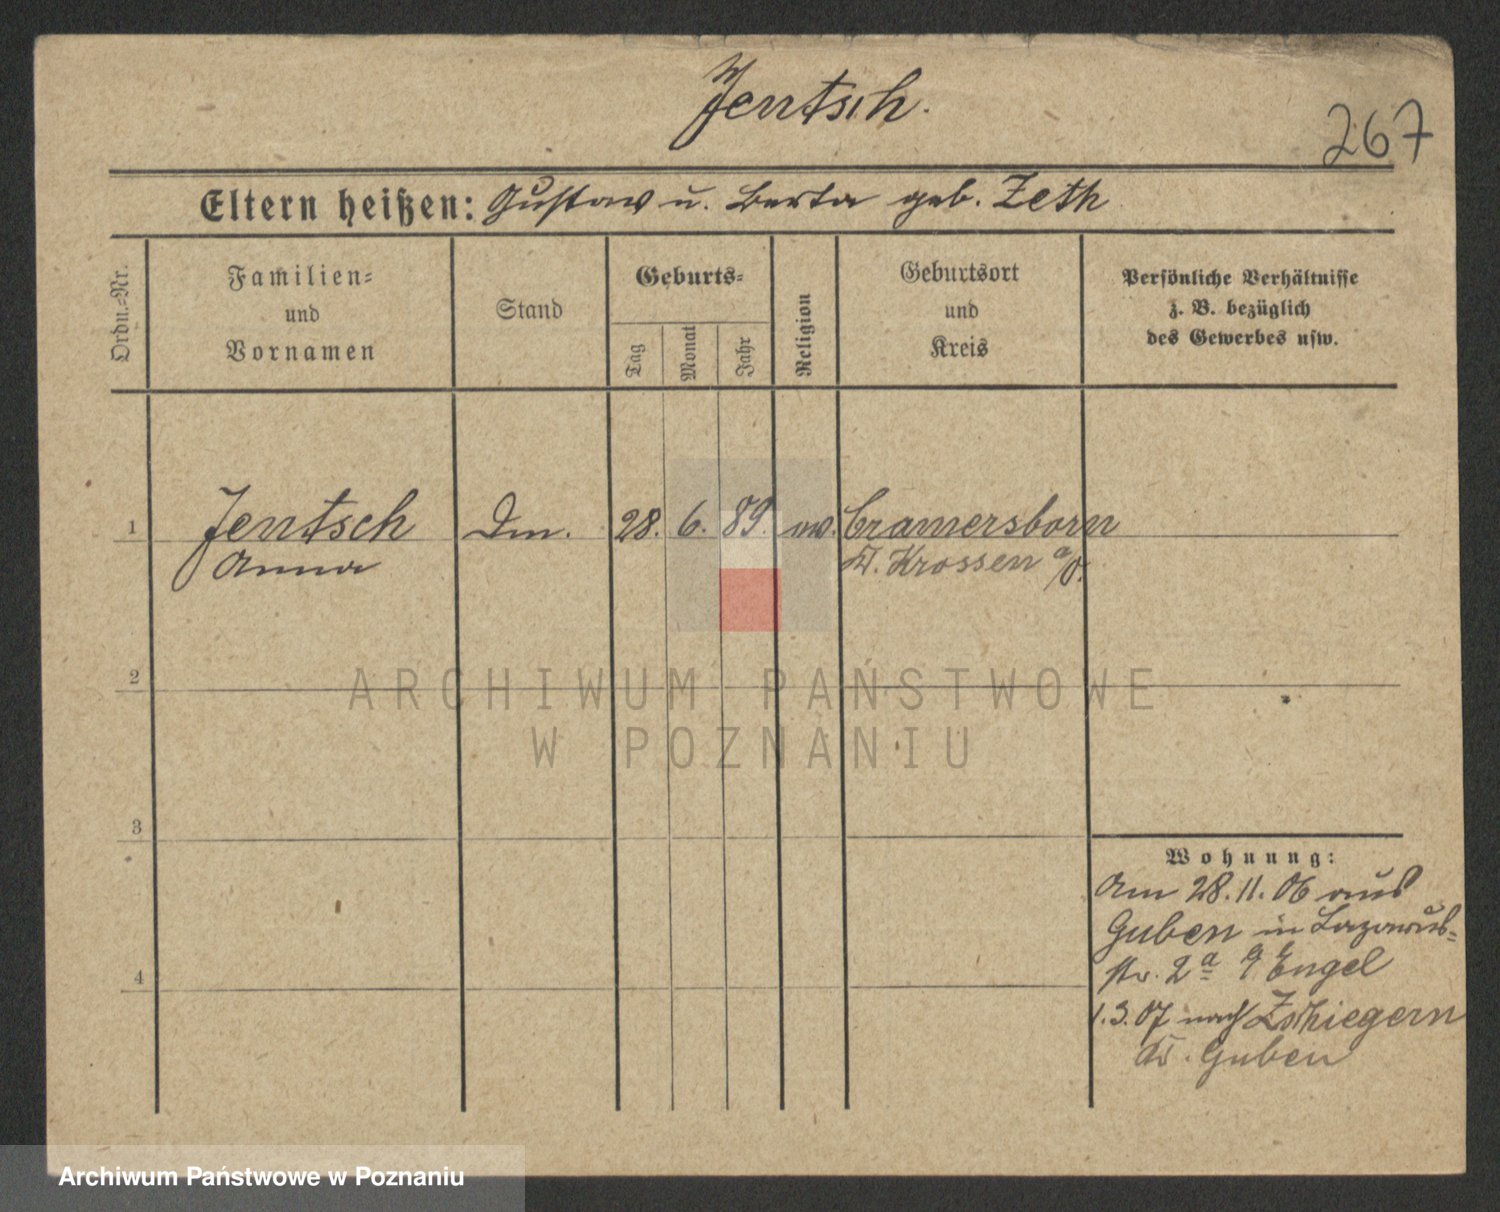 Jentsch.
267
Eltern heißen: Gustav u. Berta geb. Zeth
Ordn.-Nr.
Familien-
und
Vornamen
Stand
Geburts-
Tag
Monat
Jahr
Religion
Geburtsort
und
Kreis
Persönliche Verhältnisse
z. B. bezüglich
des Gewerbes usw.
1 Jentsch Dm. 28. 6. 89. ev. Cramersborn
Anna Kr. Krossen a/O.
2
ARCHIWUM PAŃSTWOWE
W POZNANIU
3
Wohnung:
Am 28.11.06 aus
Guben in Lazarus-
str. 2a Engel
4
1.3.07 nach Zschiegern
Kr. Guben
Archiwum Państwowe w Poznaniu